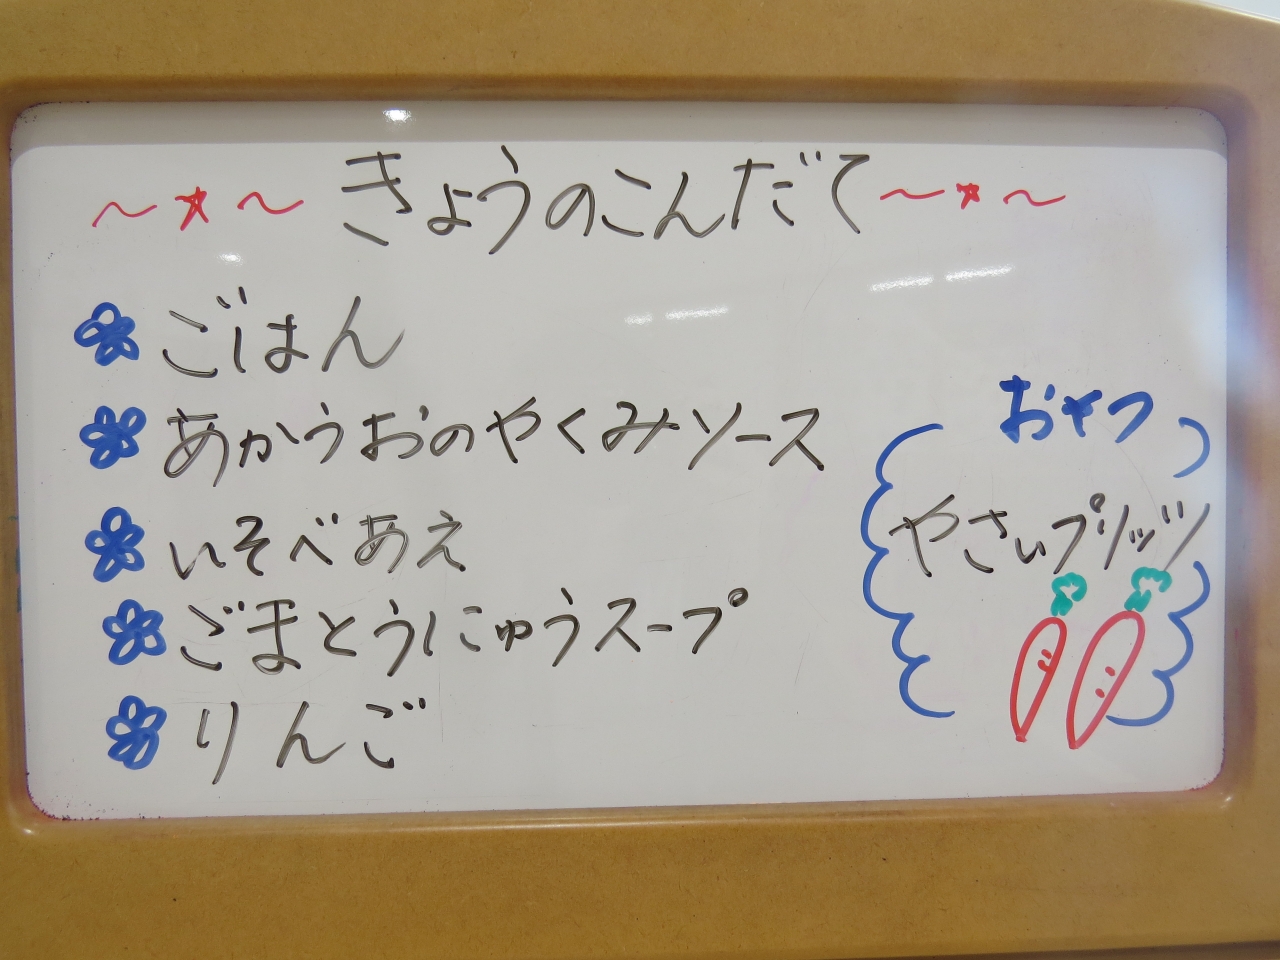 〜★〜 きょうのこんだて 〜★〜
ごはん
あかうおのやくみソース
いそべあえ
ごまとうにゅうスープ
りんご
おやつ
やさいプリッツ